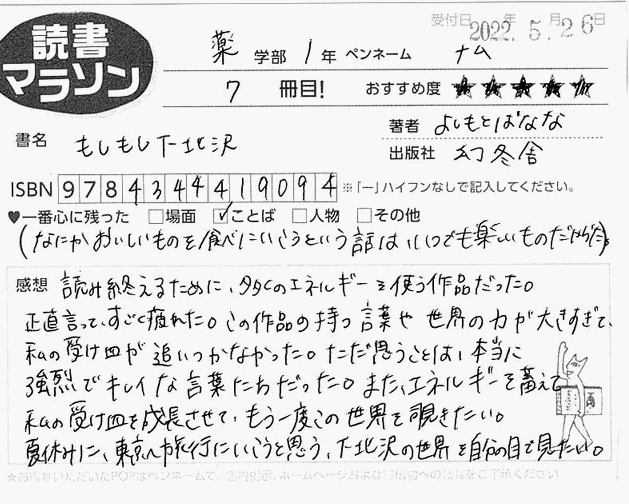 受付日 2022年 5月 26日
読書
マラソン
薬 学部 1年 ペンネーム ナム
7 冊目! おすすめ度 ★★★★★
書名 もしもし下北沢
著者 よしもとばなな
出版社 幻冬舎
ISBN 9784344419094 ※「ー」ハイフンなしで記入してください。
♥一番心に残った □場面 ☑ことば □人物 □その他
(なにかおいしいものを食べにいこうという話はいつでも楽しいものだからだ。)
感想 読み終えるために、多くのエネルギーを使う作品だった。
正直言って、すごく疲れた。この作品の持つ言葉や世界の力が大きすぎて、
私の受け皿が追いつかなかった。ただ思うことは、本当に
強烈でキレイな言葉たちだった。また、エネルギーを蓄えて
私の受け皿を成長させて、もう一度この世界を覗きたい。
夏休みに、東京へ旅行にいこうと思う、下北沢の世界を自分の目で見たい。
★お寄せいただいたPOPはペンネームで、店内掲示、ホームページおよび
をご了承ください